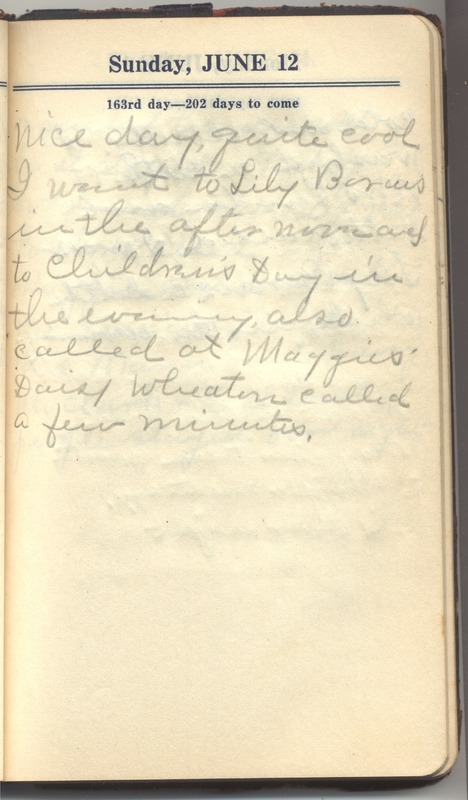 Sunday, JUNE 12
163rd day—202 days to come
Nice day, quite cool
I went to Lily
in the after noon and
to Children's Day in
the evening, also
called at Maggies'
Daisy Wheaton called
a few minutes.